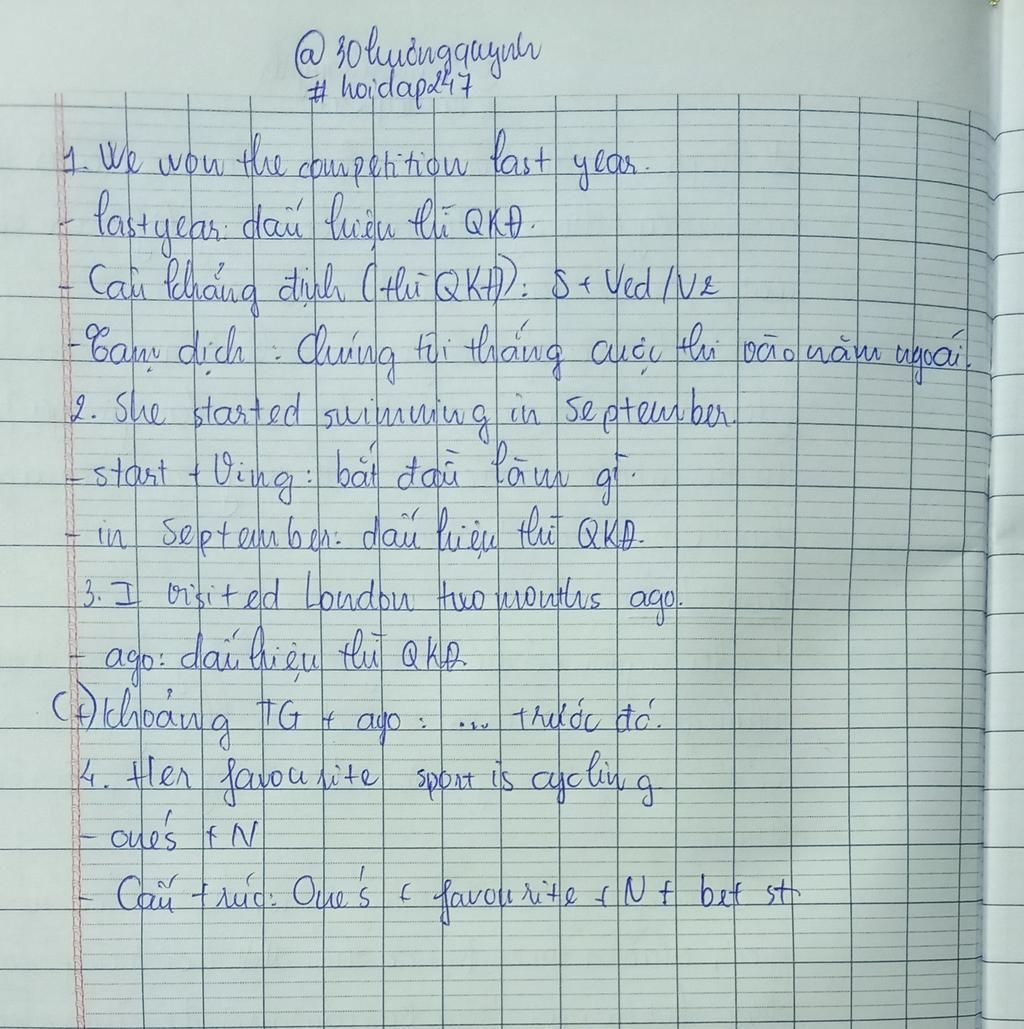 @ 30huongquynh
# hoidap247
1. We won the competition last year.
- last year: dấu hiệu thì QKĐ.
- Câu khẳng định (thì QKĐ): S + Ved/V2
- Tạm dịch: Chúng tôi thắng cuộc thi vào năm ngoái.
2. She started swimming in September.
- start + Ving: bắt đầu làm gì.
- in September: dấu hiệu thì QKĐ.
3. I visited London two months ago.
- ago: dấu hiệu thì QKĐ.
(+) Khoảng TG + ago: ... trước đó.
4. Her favourite sport is cycling
- one's + N
- Cấu trúc: One's + favourite + N + be + st